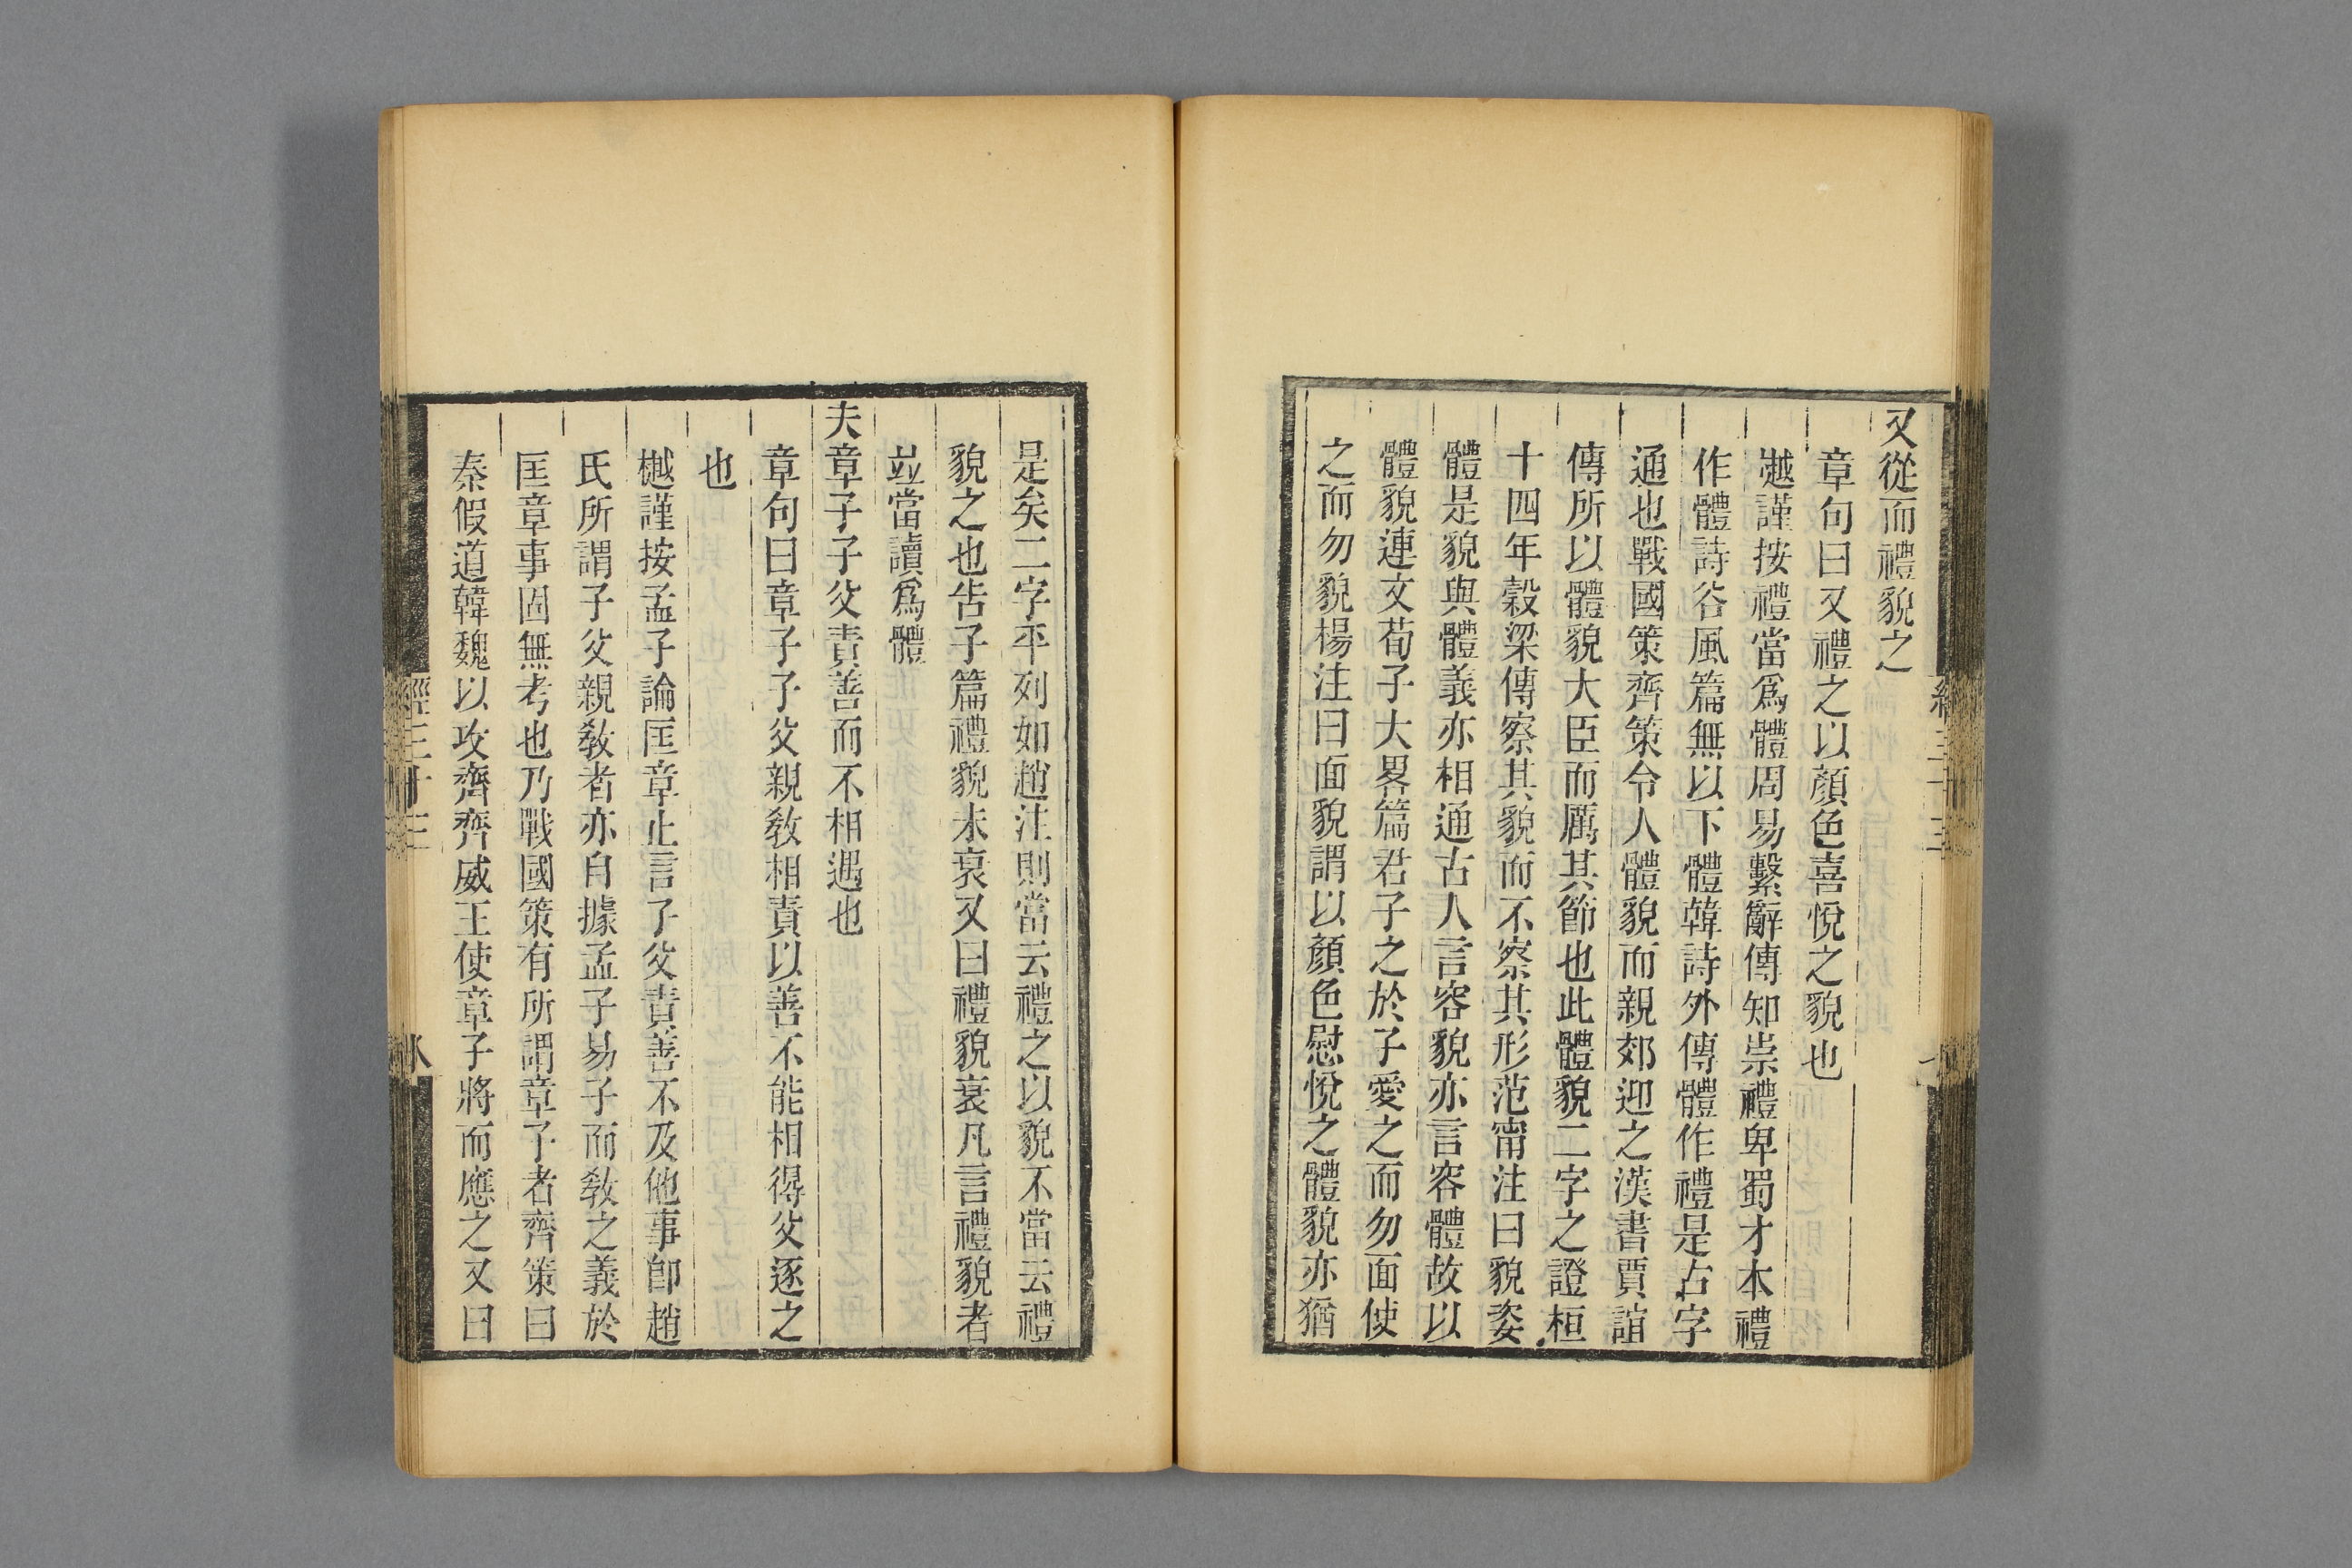 又從而禮貌之
章句曰又禮之以顏色喜悅之貌也
樾謹按禮當爲體周易繫辭傳知崇禮卑蜀才本禮
作體詩谷風篇無以下體韓詩外傳體作禮是古字
通也戰國策齊策令人體貌而親郊迎之漢書賈誼
傳所以體貌大臣而厲其節也此體貌二字之證桓
十四年穀梁傳察其貌而不察其形范甯注曰貌姿
體是貌與體義亦相通古人言容貌亦言容體故以
體貌連文荀子大畧篇君子之於子愛之而勿面使
之而勿貌楊注曰面貌謂以顏色慰悅之體貌亦猶
是矣二字平列如趙注則當云禮之以貌不當云禮
貌之也告子篇禮貌未衰又曰禮貌衰凡言禮貌者
並當讀爲體
夫章子子父責善而不相遇也
章句曰章子子父親敎相責以善不能相得父逐之
也
樾謹按孟子論匡章止言子父責善不及他事卽趙
氏所謂子父親敎者亦自據孟子易子而敎之義於
匡章事固無考也乃戰國策有所謂章子者齊策曰
秦假道韓魏以攻齊齊威王使章子將而應之又曰
經三十三